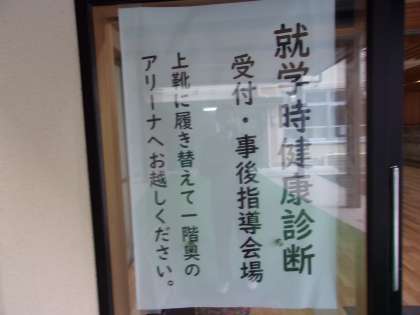 就学時健康診断
受付・事後指導会場
上靴に履き替えて一階奥の
アリーナへお越しください。